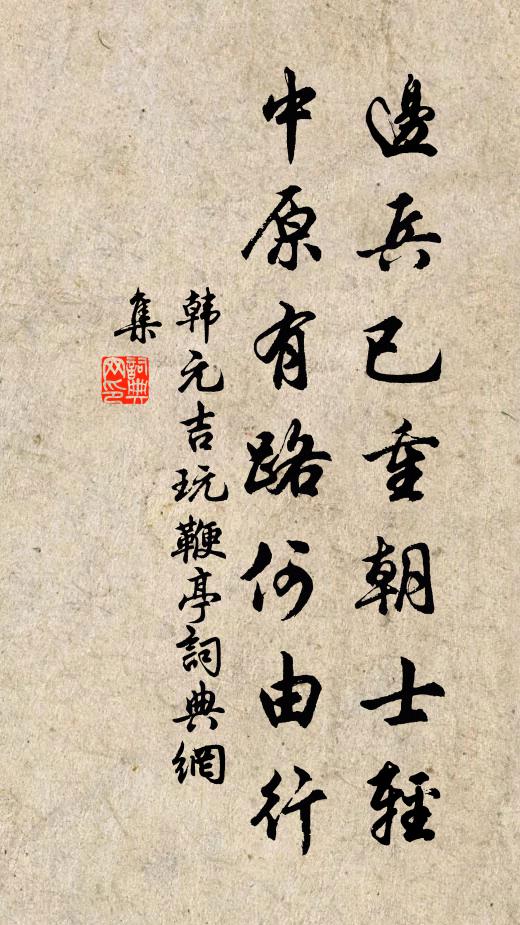 邊兵已重朝士輕
中原有路何由行
韩元吉玩鞭亭詞典網
集
詞典網印